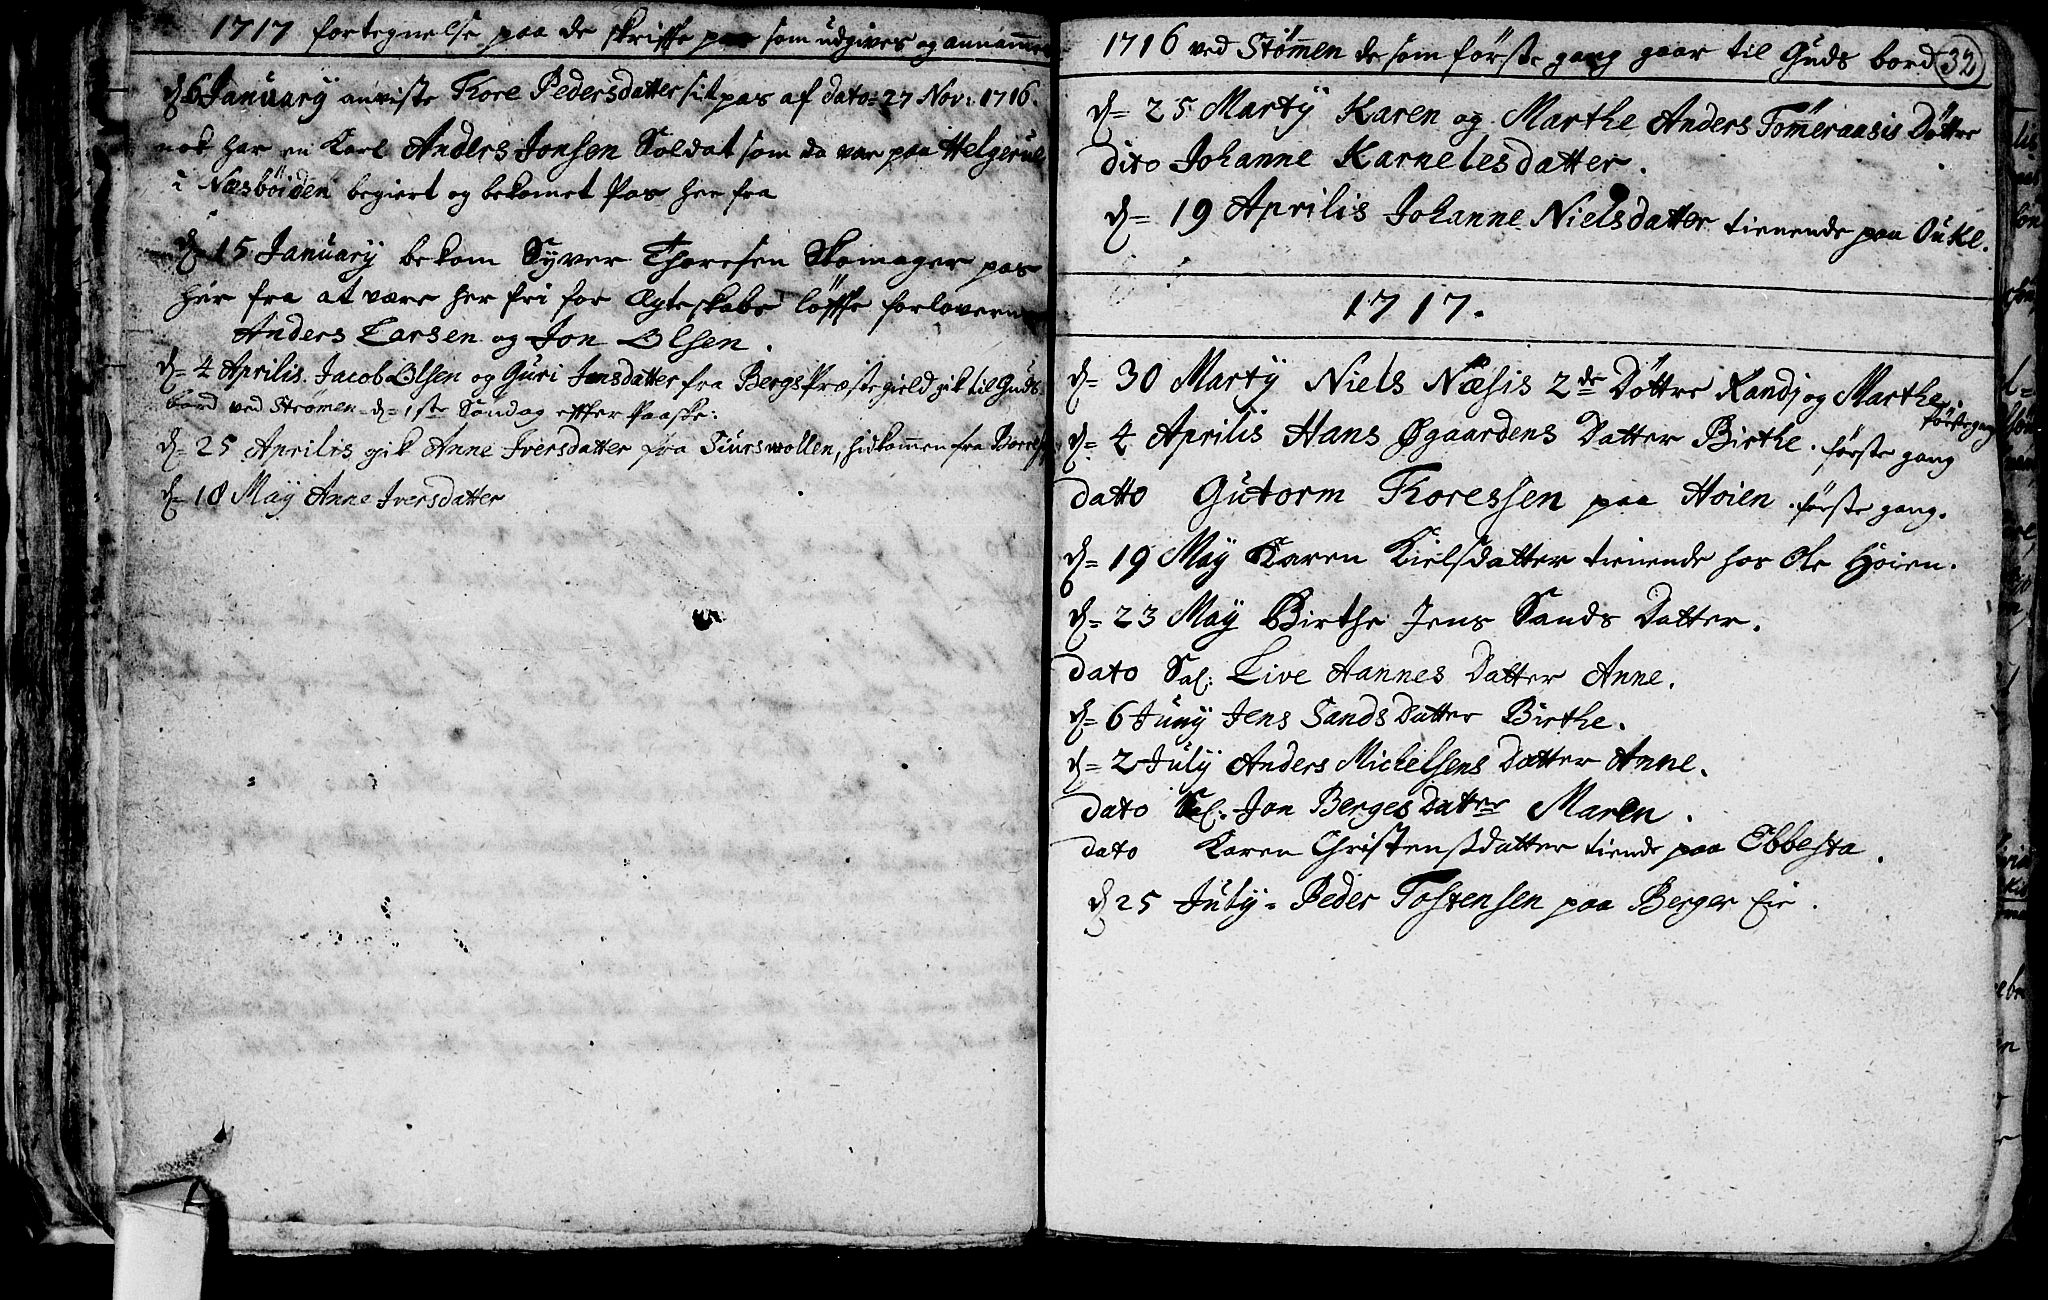 1717 fortegnelse paa de skrifte pas som udgives og annammes
d= 6 January anviste Tore Pedersdatter sit pas af dato: 27 Nov: 1716.
nok har en Karl Anders Jonsen Soldat som da var paa Helgerud
i Næsböiden begiert og bekomet Pas her fra
d= 15 January bekom Syver Thoresen Skomager pas
her fra at være her fri for Ægteskabs löffte forlovere
Anders Larsen og Jon Olsen.
d= 4 Aprilis. Jacob Olsen og Guri Jensdatter fra Bergs Præstegield gik til Guds
bord ved Strömen d= 1ste Söndag efter Paaske:
d= 25 Aprilis gik Anne Iversdatter fra hidkommen fra
d= 18 Maÿ Anne Iversdatter
1716 ved Stömen de som förste gang gaar til Guds bord
32
d= 25 Martÿ Karen og Marthe Anders Tömeraasis Dötter
dito Johanne Karnelesdatter.
d= 19 Aprilis Johanne Nielsdatter tienende paa Oukl.
1717.
d= 30 Martÿ Niels Næsis 2de Döttre Randj og Marthe.
förste gang
d= 4 Aprilis Hans Øgaardens Datter Birthe. förste gang
datto Gutorm Toressen paa Hoien. förste gang.
d= 19 Maÿ Karen Kielsdatter tienende hos Ole Höien.
d= 23 Maÿ Birthe Jens Sands Datter.
dato Sal: Live Aannes Datter Anne.
d= 6 Junÿ Jens Sands Datter Birthe.
d= 2 Julÿ Anders Michelsens Datter Anne.
dato Sal: Jon Berges Datter Maren.
dato Karen Christensdatter tiende paa Ebbesta.
d 25 Julÿ= Peder Tostensen paa Berger Eie.